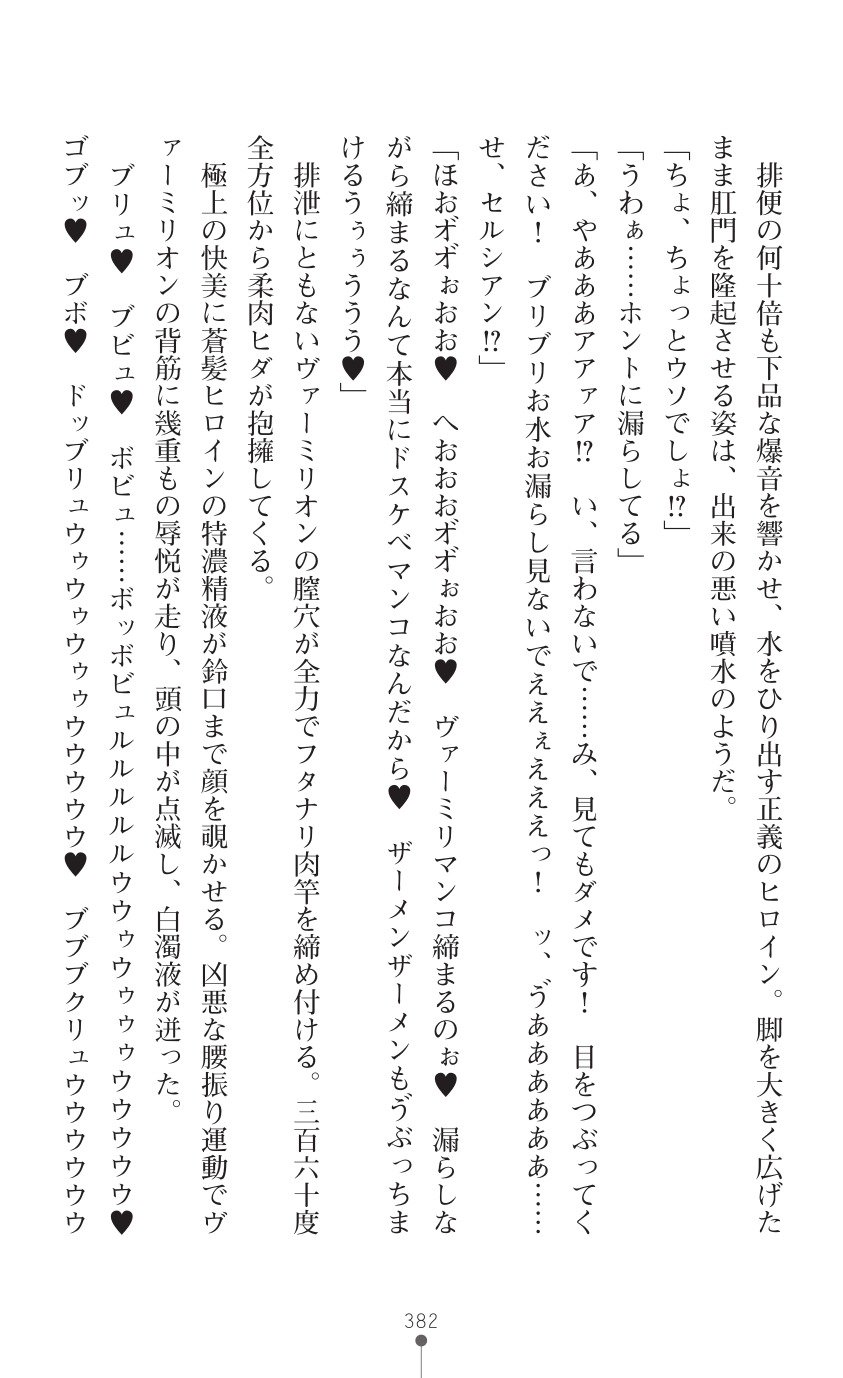 排便の何十倍も下品な爆音を響かせ、水をひり出す正義のヒロイン。脚を大きく広げた
まま肛門を隆起させる姿は、出来の悪い噴水のようだ。
「ちょ、ちょっとウソでしょ!?」
「うわぁ……ホントに漏らしてる」
「あ、やあああアアァア!?　い、言わないで……み、見てもダメです！　目をつぶってく
ださい！　ブリブリお水お漏らし見ないでええぇえええっ！　ッ、ゔああああああ……
せ、セルシアン!?」
「ほおオ゛オ゛ぉおお♥　へおおおオ゛オ゛ぉおお♥　ヴァーミリマンコ締まるのぉ♥　漏らしな
がら締まるなんて本当にドスケベマンコなんだから♥　ザーメンザーメンもゔぶっちま
けるうぅぅううう♥」
排泄にともないヴァーミリオンの膣穴が全力でフタナリ肉竿を締め付ける。三百六十度
全方位から柔肉ヒダが抱擁してくる。
極上の快美に蒼髪ヒロインの特濃精液が鈴口まで顔を覗かせる。凶悪な腰振り運動でヴ
ァーミリオンの背筋に幾重もの辱悦が走り、頭の中が点滅し、白濁液が迸った。
ブリュ♥　ブビュ♥　ボビュ……ボッボビュルルルルルウウゥウゥゥウウウウウ♥
ゴブッ♥　ブボ♥　ドッブリュウゥウゥウゥゥウウウウウ♥　ブブブクリュウウウウウウ
382